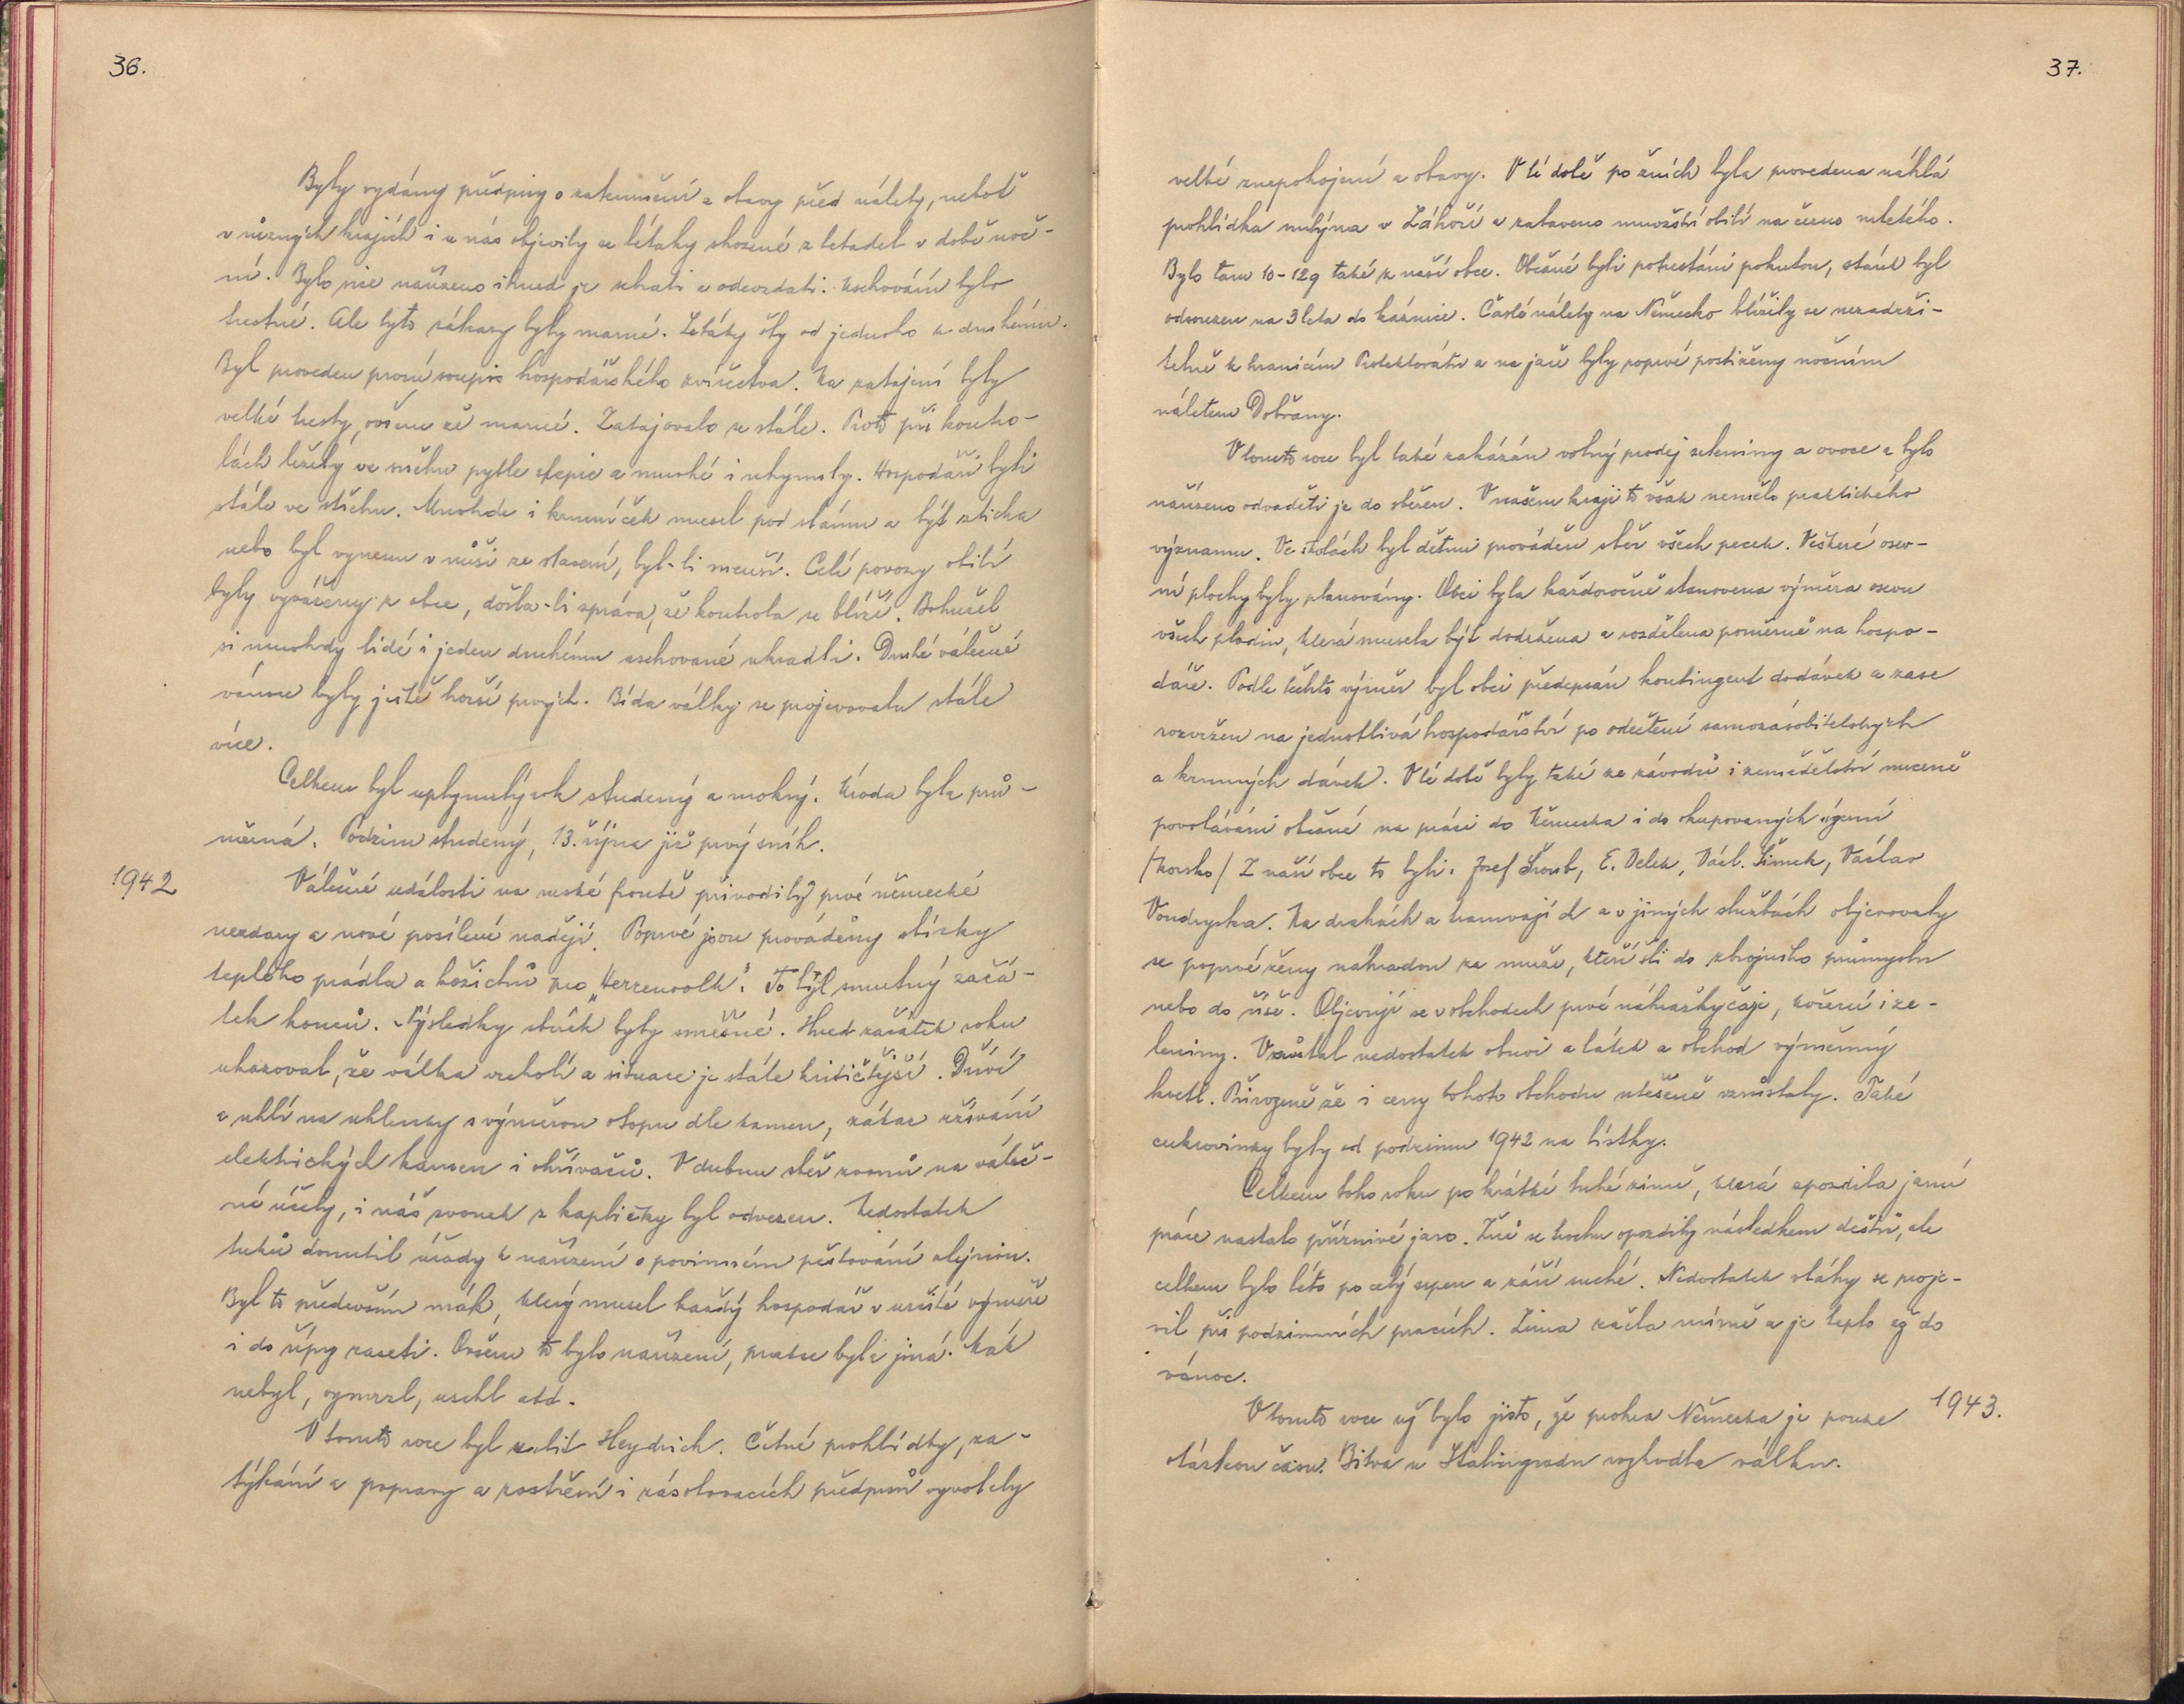 36.
Byly vydány předpisy o zatemnění a obavy před nálety, neboť
v různých krajích i u nás objevily se letáky shozené z letadel v době noč-
ní. Bylo sice nařízeno ihned je sebrati a odevzdati. Uschování bylo
trestné. Ale tyto zákazy byly marné. Letáky šly od jednoho k druhému.
Byl proveden první soupis hospodářského zvířectva. Za zatajení byly
velké tresty, ovšem že marné. Zatajovalo se stále. Proto při kontro-
lách ležely ve sněhu pytle slepic a mnohé i uhynuly. Hospodáři byli
stále ve střehu. Mnohde i krmníček musel pod slámu a být zticha
nebo byl vynesen v nůši ze stavení, byl-li menší. Celé povozy obilí
byly vyváženy z obce, došla-li zpráva, že kontrola se blíží. Bohužel
si mnohdy lidé i jeden druhému uschované ukradli. Druhé válečné
vánoce byly ještě horší prvých. Bída války se projevovala stále
více.
Celkem byl uplynulý rok studený a mokrý. Úroda byla prů-
měrná. Podzim studený, 13. října již prvý sníh.
1942
Válečné události na ruské frontě přivodily prvé německé
nezdary a nové posílené naděje. Poprvé jsou prováděny sbírky
teplého prádla a kožichů pro „Herrenvolk". To byl smutný začá-
tek konců. Výsledky sbírek byly směšné. Hned začátek roku
ukazoval, že válka vrcholí a situace je stále kritičtější. Dříví
a uhlí na uhlenky s výměrou otopu dle kamen, zákaz užívání
elektrických kamen i ohřívačů. V dubnu sběr zvonů na váleč-
né účely, i náš zvonek z kapličky byl odvezen. Nedostatek
tuků donutil úřady k nařízení o povinném pěstování olejnin.
Byl to především mák, který musel každý hospodář v určité výměře
i do řípy zaseti. Ovšem to bylo nařízení, praxe byla jiná. Mák
nebyl, vymrzl, uschl atd.
V tomto roce byl zabit Heydrich. Četné prohlídky, za-
týkání a popravy a zostření i zásobovacích předpisů vyvolaly
37.
velké znepokojení a obavy. V té době po žních byla provedena náhlá
prohlídka mlýna v Záhoří a zabaveno množství obilí na černo mletého.
Bylo tam 10-12q také z naší obce. Občané byli potrestáni pokutou, stárek byl
odsouzen na 3 leta do káznice. Časté nálety na Německo blížily se nezadrži-
telně k hranicím Protektorátu a na jaře byly poprvé postiženy nočním
náletem Dobřany.
V tomto roce byl také zakázán volný prodej zeleniny a ovoce a bylo
nařízeno odváděti je do sběren. V našem kraji to však nemělo praktického
významu. Ve školách byl dětmi prováděn sběr všech pecek. Veškeré osev-
ní plochy byly plánovány. Obci byla každoročně stanovena výměra osevu
všech plodin, která musela být dodržena a rozdělena poměrně na hospo-
dáře. Podle těchto výměr byl obci předepsán kontingent dodávek a zase
rozvržen na jednotlivá hospodářství po odečtení samozásobitelských
a krmných dávek. V té době byly také ze závodů i zemědělství nuceně
povoláváni občané na práci do Německa i do okupovaných území
/Norsko/ Z naší obce to byli: Josef Šroub, E. Velek, Václ. Šimek, Václav
Vondryska. Na drahách a tramvajích a v jiných službách objevovaly
se poprvé ženy náhradou za muže, kteří šli do zbrojního průmyslu
nebo do říše. Objevují se v obchodech prvé náhražky čaje, koření i ze-
leniny. Vzrůstal nedostatek obuvi a látek a obchod výměnný
kvetl. Přirozeně že i ceny tohoto obchodu utěšeně vzrůstaly. Také
cukrovinky byly od podzimu 1942 na lístky.
Celkem toho roku po krátké tuhé zimě, která opozdila jarní
práce nastalo příznivé jaro. Žně se trochu opozdily následkem dešťů, ale
celkem bylo léto po celý srpen a září suché. Nedostatek vláhy se proje-
vil při podzimních pracích. Zima začla mírně a je teplo až do
vánoc.
1943.
V tomto roce už bylo jisto, že prohra Německa je pouze
otázkou času. Bitva u Stalingradu rozhodla válku.